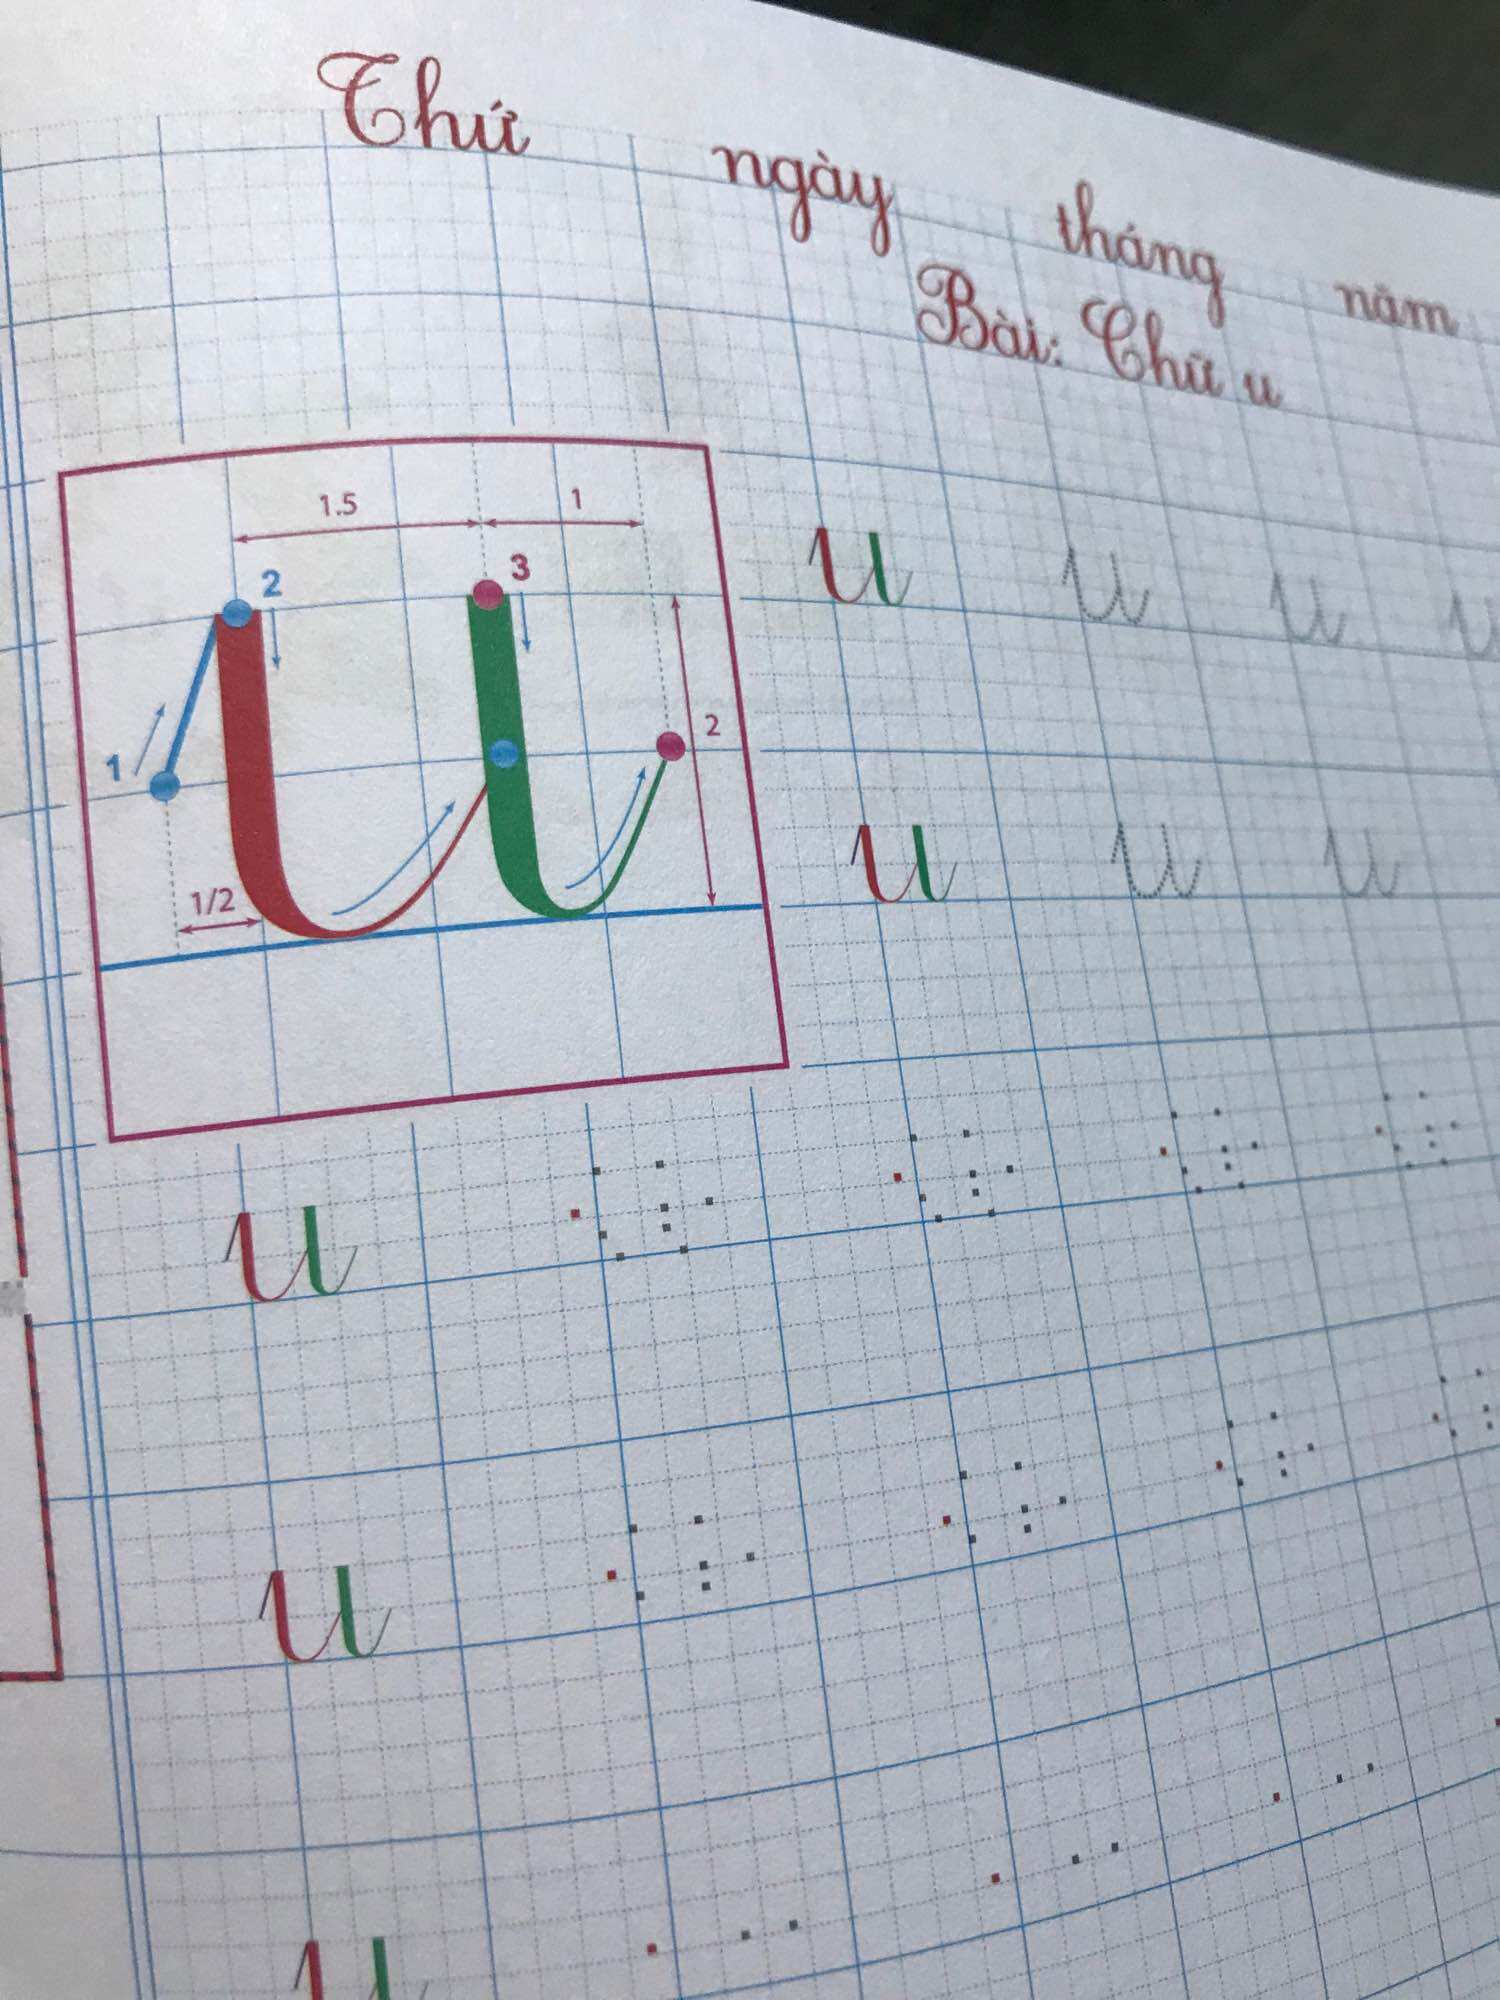 Thứ ngày tháng năm
Bài: Chữ u
1.5 1
2 3
1 2
1/2
u u u u
u u u
u
u
u